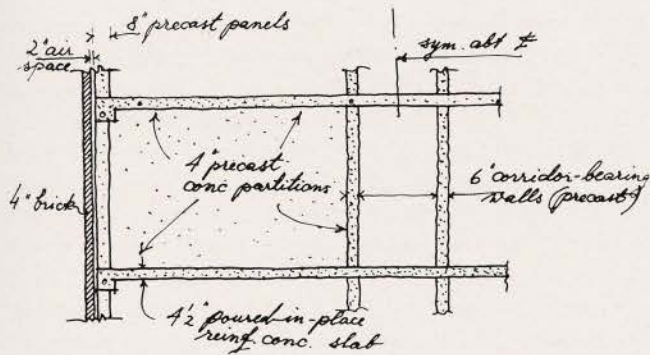 8" precast panels
2" air
space
sym. abt ℄
4" precast
conc partitions
6" corridor-bearing
walls (precast)
4" brick
4½" poured-in-place
reinf. conc. slab